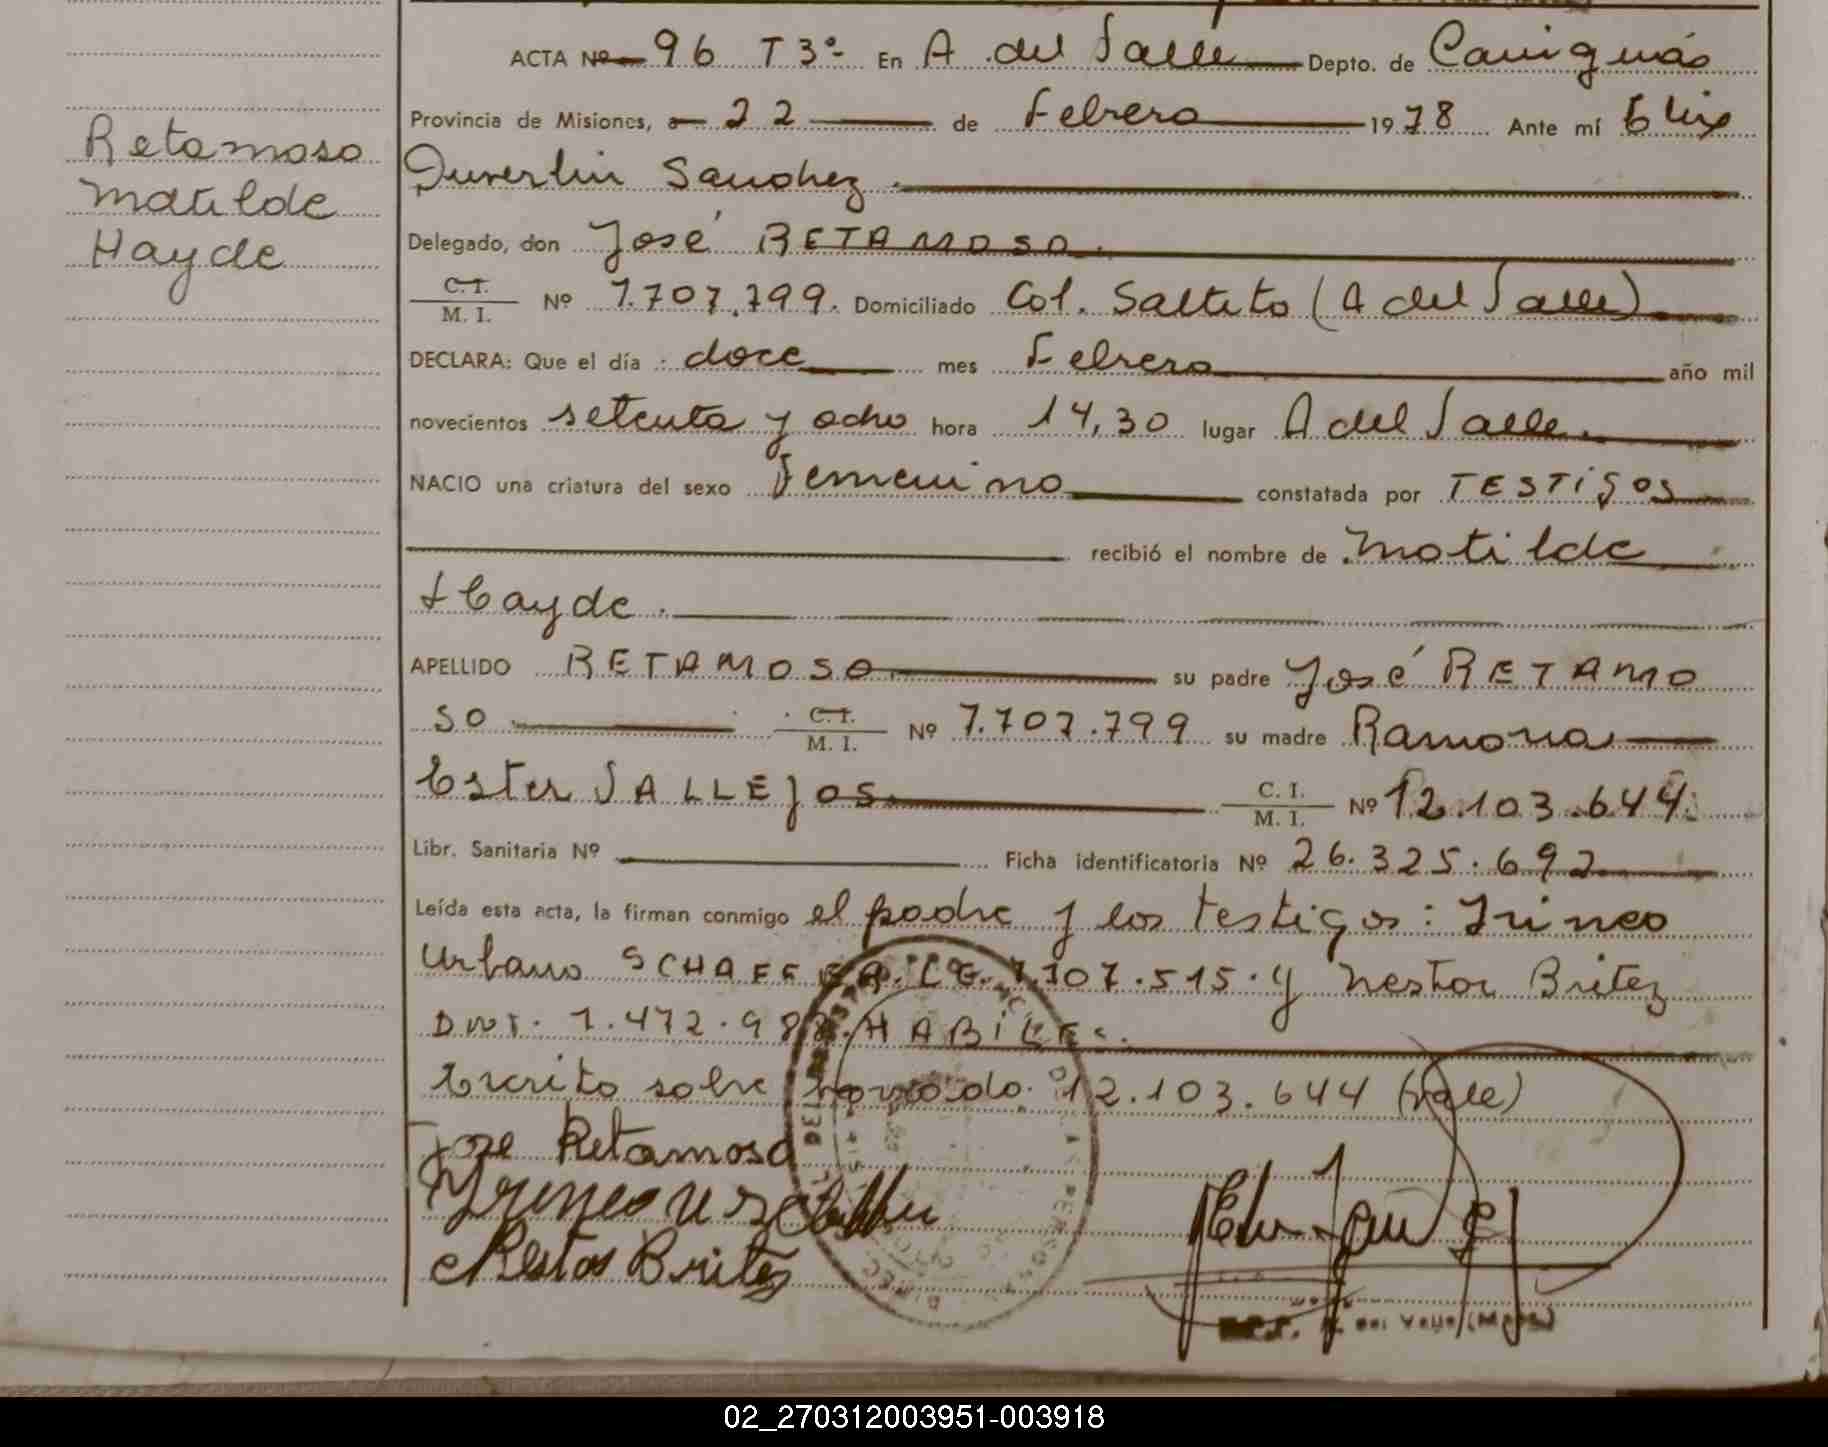 ACTA Nº 96 T 3º En A. del Valle Depto. de Cainguás
Provincia de Misiones, a 22 de Febrero 1978 Ante mí
Sanchez
Retamoso
Matilde
Hayde
Delegado, don José RETAMOSO.
C.I. / M. I. Nº 7.707.799. Domiciliado Col. Saltito (A del Valle)
DECLARA: Que el día doce mes Febrero año mil
novecientos setenta y ocho hora 14,30 lugar A del Valle.
NACIO una criatura del sexo Femenino constatada por TESTIGOS
recibió el nombre de Matilde
Hayde.
APELLIDO RETAMOSO su padre José RETAMO
SO C.I. / M. I. Nº 7.707.799 su madre Ramona
Ester VALLEJOS. C. I. / M. I. Nº 12.103.644.
Libr. Sanitaria Nº Ficha identificatoria Nº 26.325.692
Leída esta acta, la firman conmigo el padre y los testigos: Irineo
Urbano SCHAEFER. LE. 7.107.515. y Nestor Britez
DNI. 7.472.98 HABILES.
Escrito sobre borrado. 12.103.644 (vale)
Jose Retamoso
Yrineo U
Nestor Britez
02_270312003951-003918